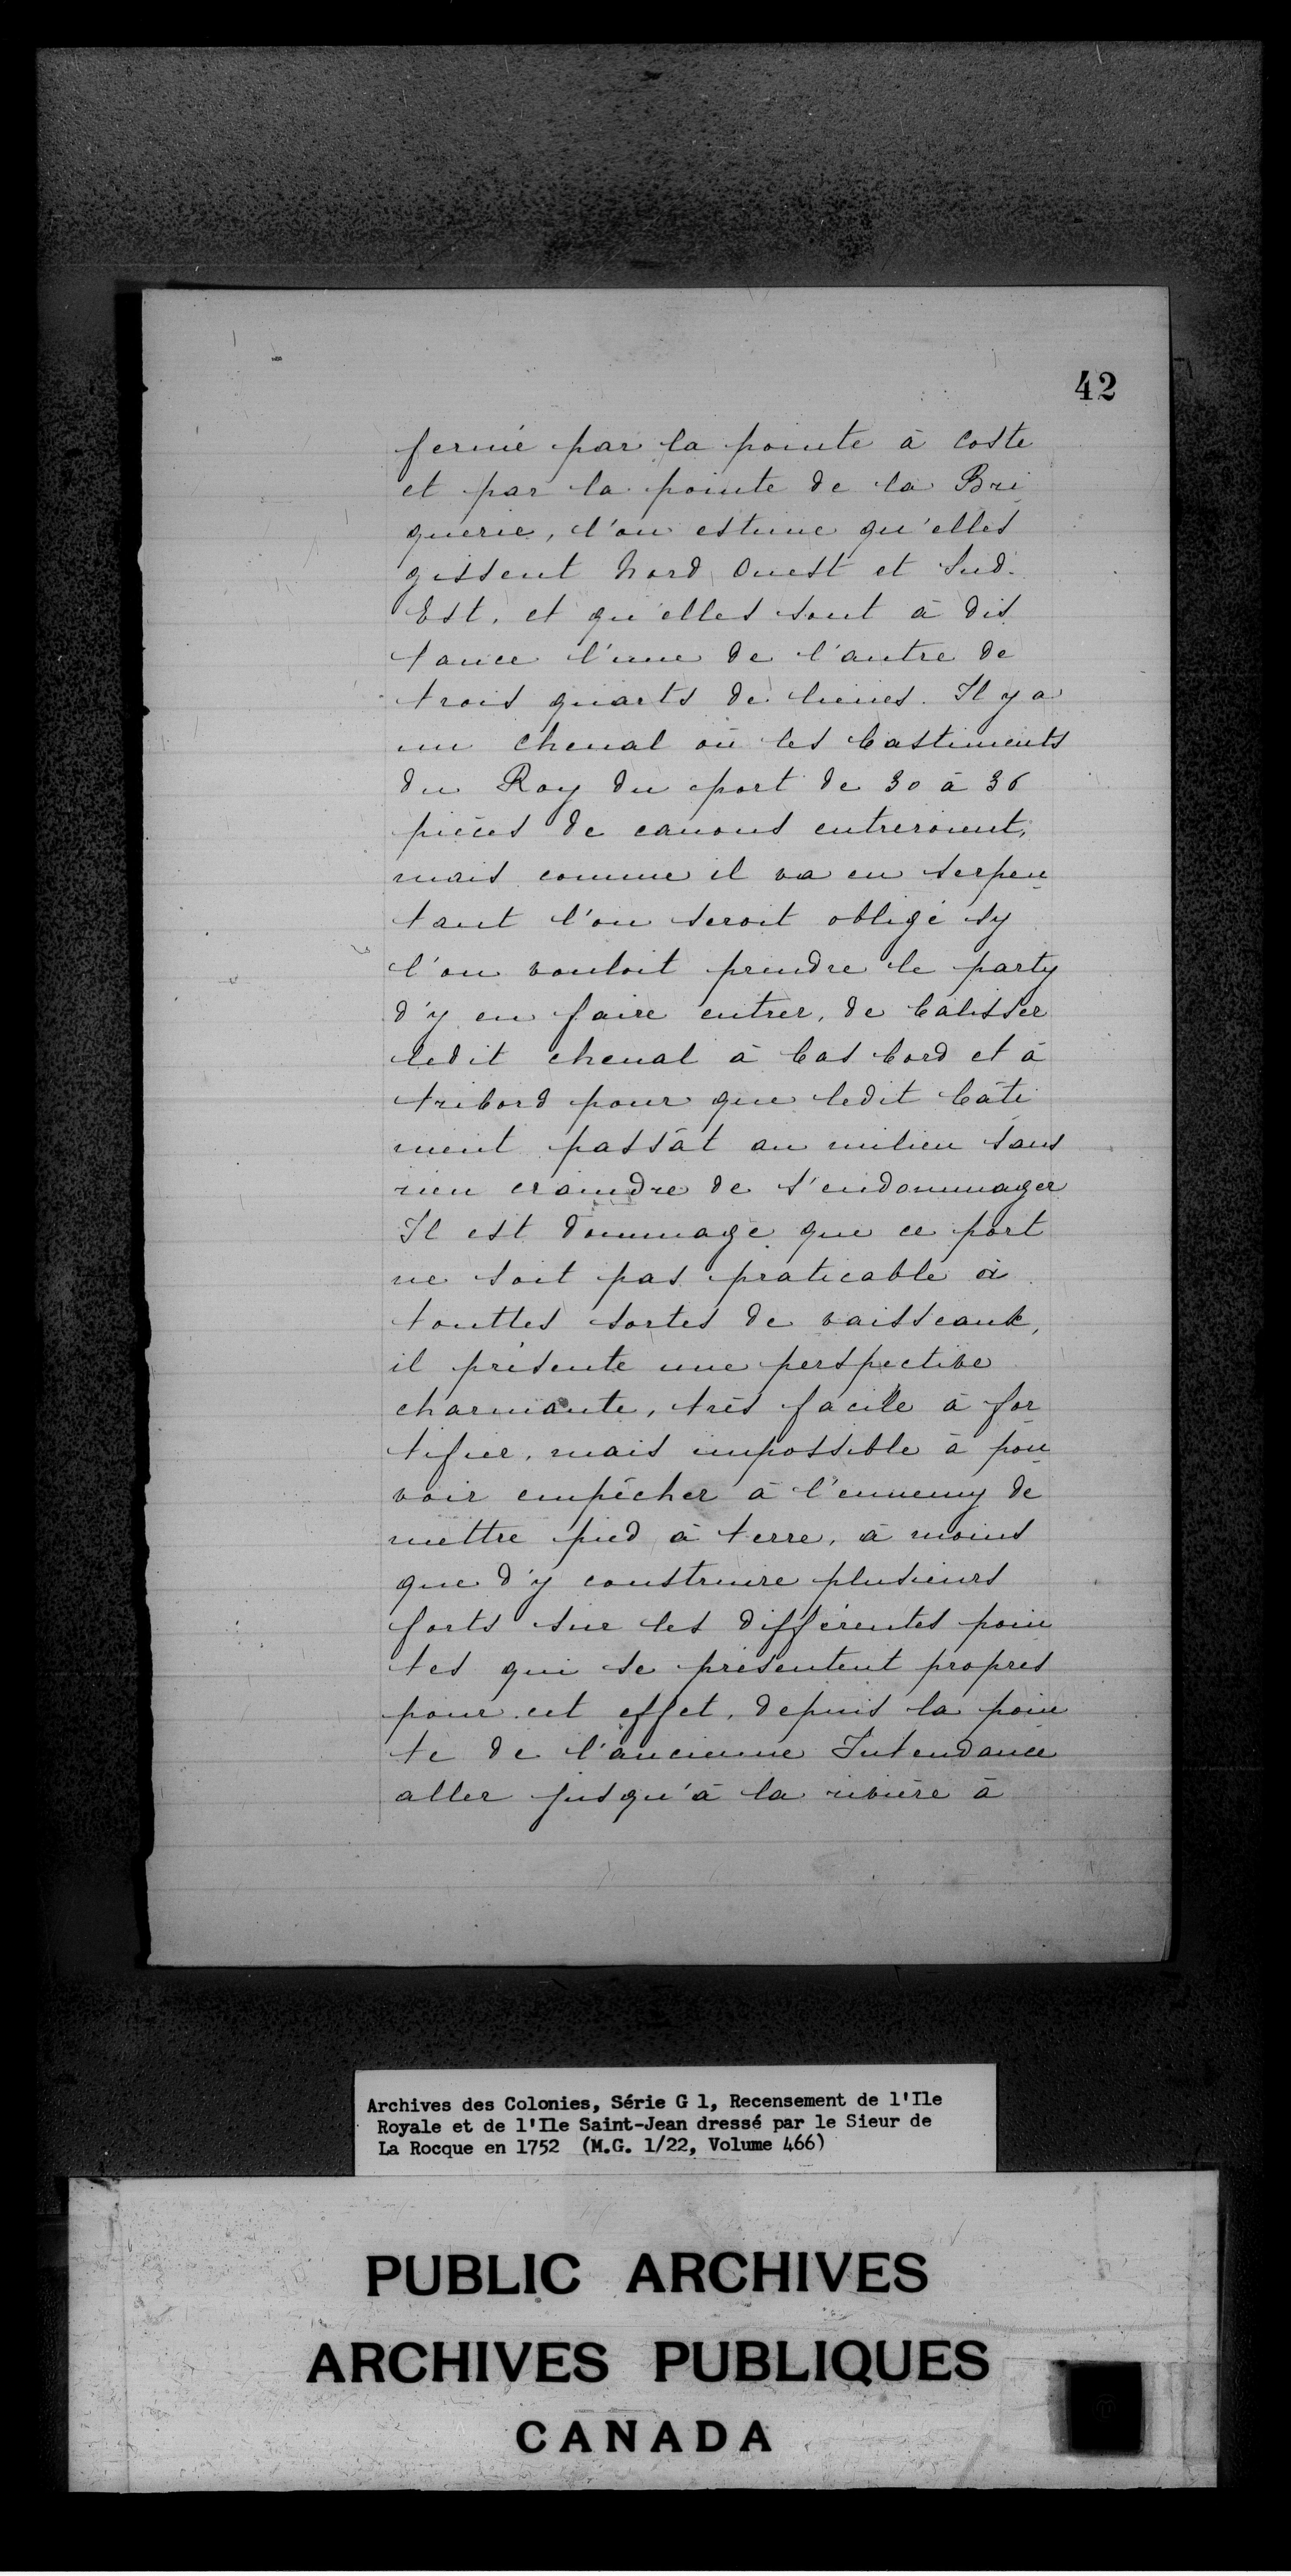 42
fermé par la pointe à Coste
et par la pointe de la Bri
querie, l'on estime qu'elles
gissent Nord Ouest et Sud-
Est, et qu'elles sont à dis
tance l'une de l'autre de
trois quarts de lieues. Il y a
un chenal où les bastiments
du Roy du port de 30 à 36
pièces de canons entreroient,
mais comme il va en serpen
tant l'on seroit obligé sy
l'on vouloit prendre le party
d'y en faire entrer, de balisser
ledit chenal à bas bord et à
tribord pour que ledit bâti
ment passât au milieu sans
rien craindre de s'endommager
Il est dommage que ce port
ne soit pas praticable à
touttes sortes de vaisseaux,
il présente une perspective
charmante, très facile à for
tifier, mais impossible à pou
voir empêcher à l'ennemy de
mettre pied à terre, à moins
que d'y construire plusieurs
forts sur les différentes poin
tes qui se présentent propres
pour cet effet, depuis la poin
te de l'ancienne Intendance
aller jusqu'à la rivière à
Archives des Colonies, Série G 1, Recensement de l'Ile
Royale et de l'Ile Saint-Jean dressé par le Sieur de
La Rocque en 1752 (M.G. 1/22, Volume 466)
PUBLIC ARCHIVES
ARCHIVES PUBLIQUES
CANADA